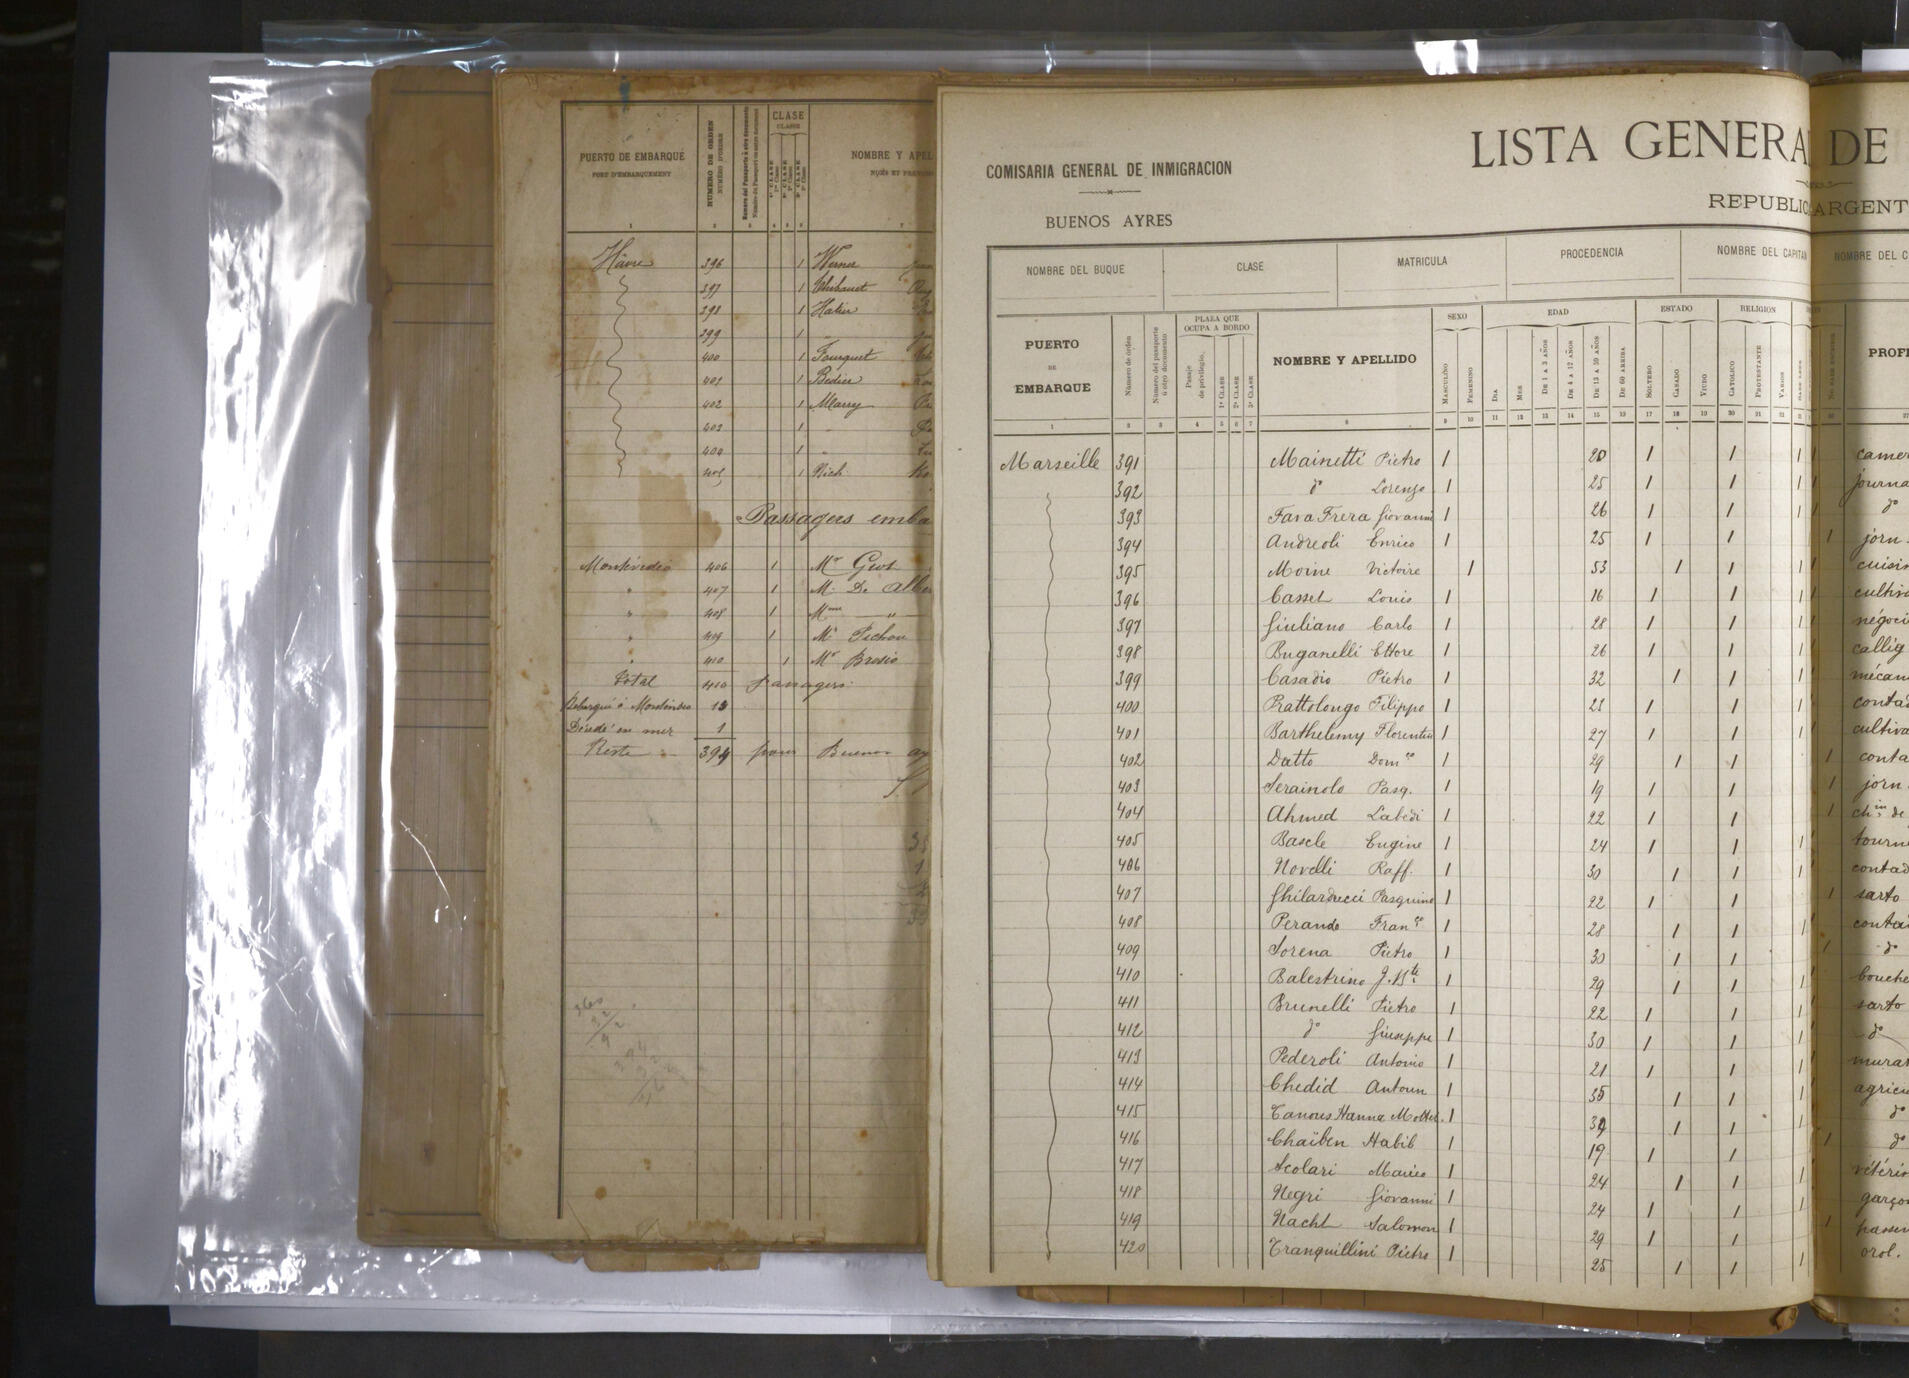 PUERTO DE EMBARQUE
PORT D'EMBARQUEMENT
NUMERO DE ORDEN
NUMÉRO D'ORDRE
CLASE
CLASSE
1ª CLASE
2ª CLASE
3ª CLASE
NOMBRE Y APEL
1 2 3 4 5 6 7
Hâvre 396 1 Werner
397 1 Thibaut
398 1 Hatier
399 1
400 1 Fourquet
401 1 Bedier
402 1 Marry
403 1 "
404 1 "
405 1 Rich
Passagers emba
Montévideo 406 1 Mr Gros
" 407 1 M. De Albe
" 408 1 Mme "
" 409 1 Mr Pichon
" 410 1 Mr Brosio
Total 410 passagers
Debarqué à Montévideo 15
Décédé en mer 1
Reste 394 pour Buenos ay
COMISARIA GENERAL DE INMIGRACION
BUENOS AYRES
LISTA GENERA DE
REPUBLIC ARGENT
NOMBRE DEL BUQUE CLASE MATRICULA PROCEDENCIA NOMBRE DEL CAPITAN NOMBRE DEL C
PUERTO DE EMBARQUE
Número de órden
Número del pasaporte ú otro documento
PLAZA QUE OCUPA A BORDO
Pasaje de privilegio.
1ª CLASE
2ª CLASE
3ª CLASE
NOMBRE Y APELLIDO
SEXO
MASCULINO
FEMENINO
EDAD
DIA
MES
DE 1 A 3 AÑOS
DE 4 A 12 AÑOS
DE 13 A 59 AÑOS
DE 60 ARRIBA
ESTADO
SOLTERO
CASADO
VIUDO
RELIGION
CATOLICO
PROTESTANTE
VARIOS
PROFE
1 2 3 4 5 6 7 8 9 10 11 12 13 14 15 16 17 18 19 20 21 22
Marseille 391 Mainetti Pietro 1 20 1 1 1 camer
392 do Lorenzo 1 25 1 1 1 journa
393 Fava Frera Giovanni 1 26 1 1 1 do
394 Andreoli Enrico 1 25 1 1 1 jorn
395 Moine Victoire 1 53 1 1 1 cuisin
396 Casset Louis 1 16 1 1 1 cultiva
397 Giuliano Carlo 1 28 1 1 1 négoci
398 Buganelli Ettore 1 26 1 1 1 callig
399 Casadio Pietro 1 32 1 1 1 mécan
400 Prattolongo Filippo 1 23 1 1 1 contad
401 Barthelemy Florentin 1 27 1 1 1 cultiva
402 Datto Domco 1 29 1 1 1 conta
403 Serainolo Pasq. 1 19 1 1 1 jorn
404 Ahmed Labidi 1 22 1 1 1 chin de
405 Bascle Eugine 1 24 1 1 1 tourn
406 Novelli Raff. 1 30 1 1 1 contad
407 Ghilarducci Pasquino 1 22 1 1 1 sarto
408 Perando Franco 1 28 1 1 1 contad
409 Sorena Pietro 1 30 1 1 1 do
410 Balestrino J. Bte 1 29 1 1 1 bouche
411 Brunelli Pietro 1 22 1 1 1 sarto
412 do Giuseppe 1 30 1 1 1 do
413 Pederoli Antonio 1 21 1 1 1 murat
414 Chedid Antoun 1 35 1 1 1 agricu
415 Tanous Hanna 1 1 1 1 do
416 Chaïben Habib 1 19 1 1 1 do
417 Scolari Marico 1 24 1 1 1 vétérin
418 Negri Giovanni 1 24 1 1 1 garçon
419 Nacht Salomon 1 29 1 1 1
420 Tranquillini Pietro 1 25 1 1 1 orol.